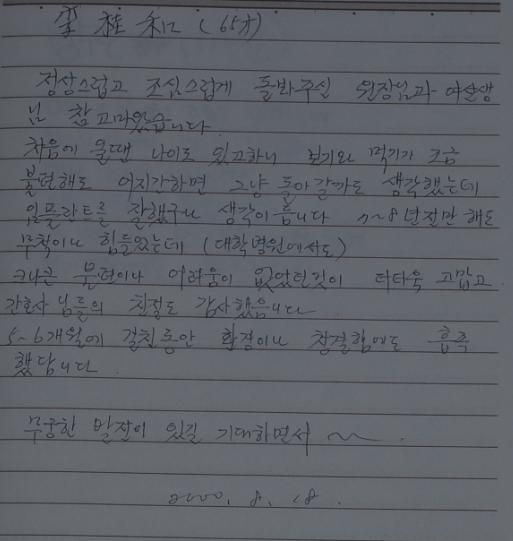 桂 和 (65才)
정상스럽고 조심스럽게 돌봐주실 원장님과 여선생
님 참 고마왔습니다
처음에 올땐 나이도 있고하니 보기와 먹기가 조금
불편해도 어지간하면 그냥 돌아갈까도 생각했는데
임플란트를 잘했구나 생각이듭니다 ~8년전만 해도
무척이나 힘들었는데 (대학병원에서도)
크나큰 불편이나 어려움이 없었던것이 더더욱 고맙고
간호사님들의 친절도 감사했읍니다
5~6개월에 걸친동안 환경이나 청결함에도 흡족
했답니다
무궁한 발전이 있길 기대하면서 ~
2000. 8. 18.